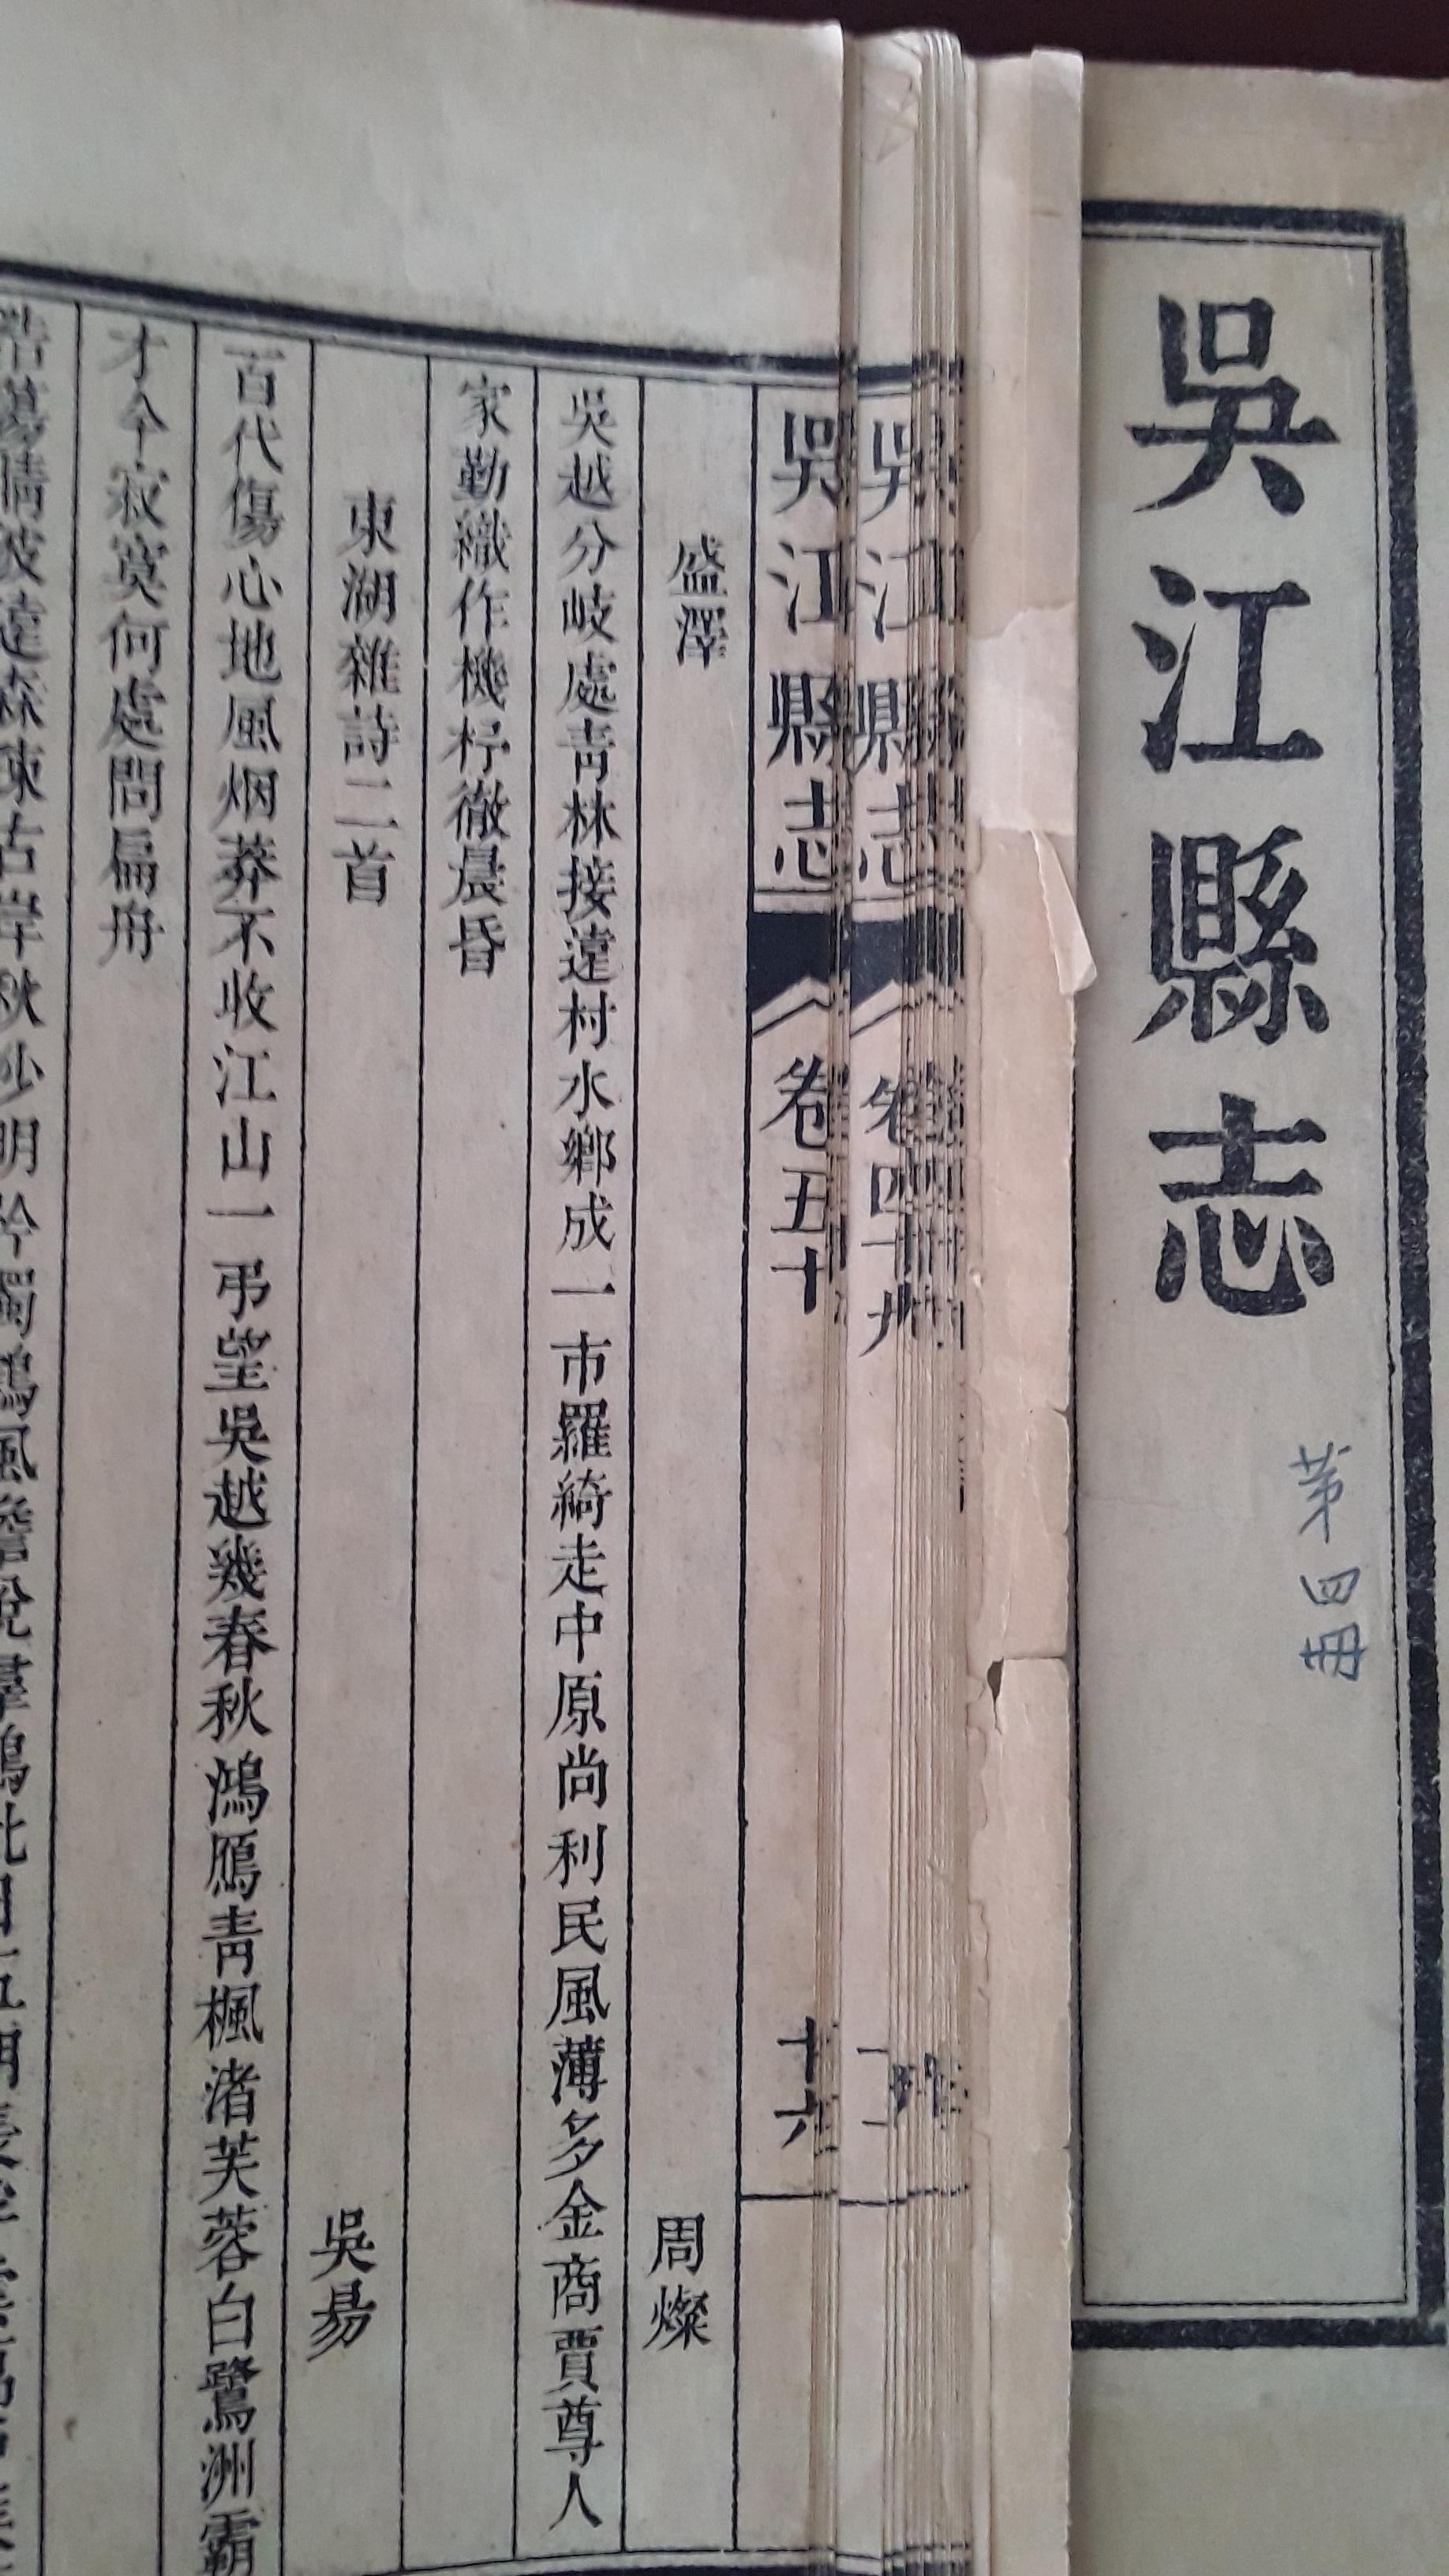 吳江縣志
第四冊
吳江縣志 卷四十九
吳江縣志 卷五十 十六
盛澤 周燦
吳越分岐處靑林接遠村水鄉成一市羅綺走中原尚利民風薄多金商賈尊人
家勤織作機杼徹晨昏
東湖雜詩二首 吳昜
百代傷心地風烟莽不收江山一弔望吳越幾春秋鴻鴈靑楓渚芙蓉白鷺洲霸
才今寂寞何處問扁舟